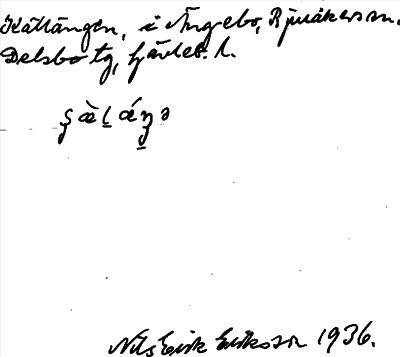 Källängen, i Ängebo, Bjuråkers sn.
Delsbo tg, Gävleb. l.
Nils Erik Eriksson 1936.